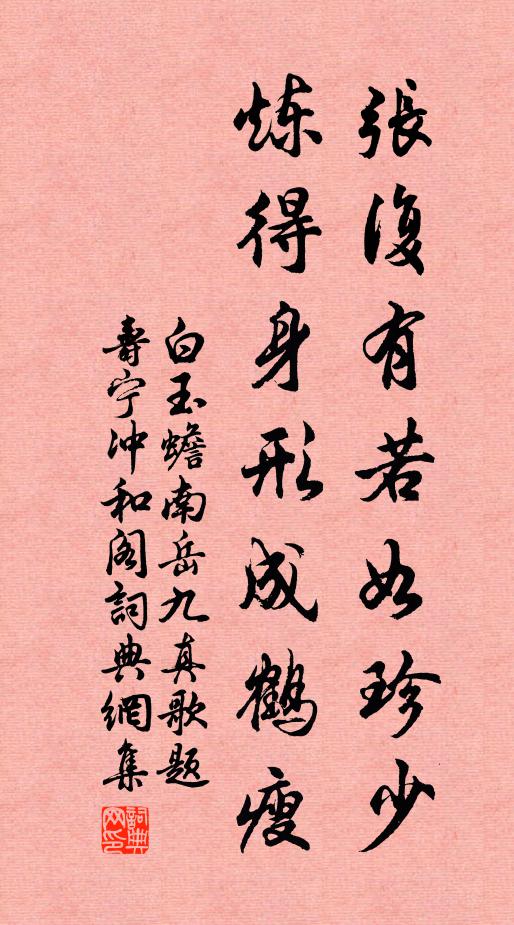 張復有若如珍少
炼得身形成鶴瘦
白玉蟾南岳九真歌题
壽宁冲和阁詞典網集
詞典网印